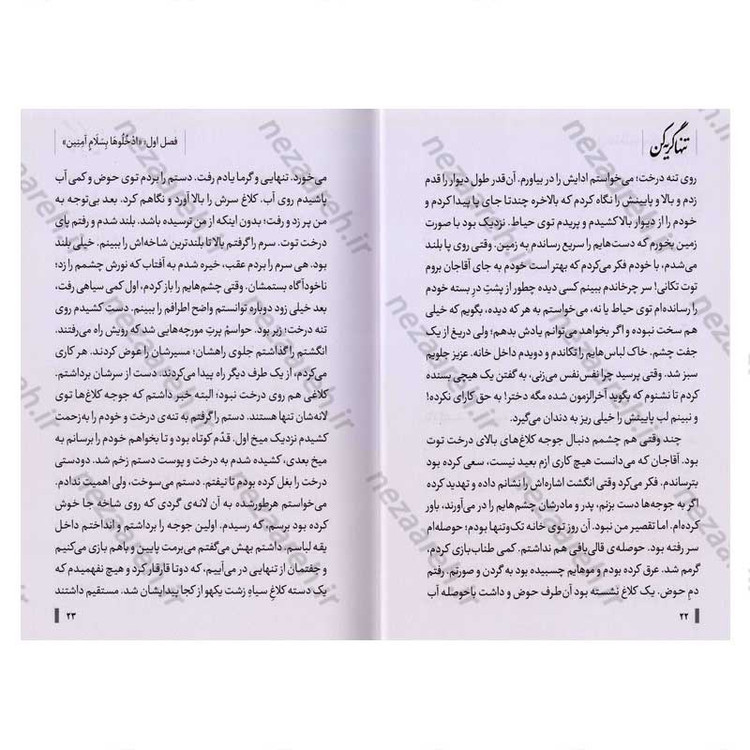 تنها گریه کن
روی تنه درخت؛ می‌خواستم ادایش را در بیاورم. آن‌قدر طول دیوار را قدم
زدم و بالا و پایینش را نگاه کردم که بالاخره چندتا جای پا پیدا کردم و
خودم را از دیوار بالا کشیدم و پریدم توی حیاط. نزدیک بود با صورت
زمین بخورم که دست‌هایم را سریع رساندم به زمین. وقتی روی پا بلند
می‌شدم، با خودم فکر می‌کردم که بهتر است خودم به جای آقاجان بروم
توت تکانی! سر چرخاندم ببینم کسی دیده چطور از پشتِ درِ بسته خودم
را رسانده‌ام توی حیاط یا نه، می‌خواستم به هر که دیده، بگویم که خیلی
هم سخت نبوده و اگر بخواهد می‌توانم یادش بدهم؛ ولی دریغ از یک
جفت چشم. خاک لباس‌هایم را تکاندم و دویدم داخل خانه. عزیز جلویم
سبز شد. وقتی پرسید چرا نفس‌نفس می‌زنی، به گفتن یک هیچی بسنده
کردم تا نشنوم که بگوید آخرالزمون شده مگه دختر! به حق کارای نکرده!
و نبینم لب پایینش را خیلی ریز به دندان می‌گیرد.
چند وقتی هم چشمم دنبال جوجه کلاغ‌های بالای درخت توت
بود. آقاجان که می‌دانست هیچ کاری ازم بعید نیست، سعی کرده بود
بترساندم. فکر می‌کرد وقتی انگشت اشاره‌اش را نشانم داده و تهدید کرده
که اگر به جوجه‌ها دست بزنم، پدر و مادرشان چشم‌هایم را در می‌آورند، باور
کرده‌ام. اما تقصیر من نبود. آن روز توی خانه تک‌وتنها بودم؛ حوصله‌ام
سر رفته بود. حوصله‌ی قالی‌بافی هم نداشتم. کمی طناب‌بازی کردم،
گرمم شد. عرق کرده بودم و موهایم چسبیده بود به گردن و صورتم. رفتم
دمِ حوض. یک کلاغ نشسته بود آن‌طرف حوض و داشت با حوصله آب
۲۲
فصل اول: «ادْخُلُوهَا بِسَلَامٍ آمِنِین»
می‌خورد. تنهایی و گرما یادم رفت. دستم را بردم توی حوض و کمی آب
پاشیدم روی آب. کلاغ سرش را بالا آورد و نگاهم کرد. بعد بی‌توجه به
من پر زد و رفت؛ بدون اینکه از من ترسیده باشد. بلند شدم و رفتم پای
درخت توت. سرم را گرفتم بالا تا بلندترین شاخه‌اش را ببینم. خیلی بلند
بود. هی سرم را بردم عقب، خیره شدم به آفتاب که نورش چشمم را زد؛
ناخودآگاه بستمشان. وقتی چشم‌هایم را باز کردم، اول کمی سیاهی رفت،
بعد خیلی زود دوباره توانستم واضح اطرافم را ببینم. دست کشیدم روی
تنه درخت؛ زبر بود. حواسم پرتِ مورچه‌هایی شد که رویش راه می‌رفتند.
انگشتم را گذاشتم جلوی راهشان؛ مسیرشان را عوض کردند. هر کاری
می‌کردم، از یک طرف دیگر راه پیدا می‌کردند. دست از سرشان برداشتم.
کلاغی هم روی درخت نبود؛ البته خبر داشتم که جوجه کلاغ‌ها توی
لانه‌شان تنها هستند. دستم را گرفتم به تنه‌ی درخت و خودم را به‌زحمت
کشیدم نزدیک میخ اول. قدّم کوتاه بود و تا بخواهم خودم را برسانم به
میخ بعدی، کشیده شدم به درخت و پوست دستم زخم شد. دودستی
درخت را بغل کرده بودم تا نیفتم. دستم می‌سوخت، ولی اهمیت ندادم.
می‌خواستم هرطورشده به آن لانه‌ی گردی که روی شاخهٔ جا خوش
کرده بود برسم، که رسیدم. اولین جوجه را برداشتم و انداختم داخل
یقه لباسم. داشتم بهش می‌گفتم می‌برمت پایین و باهم بازی می‌کنیم
و جفتمان از تنهایی در می‌آییم، که دوتا قارقار کرد و هیچ نفهمیدم که
یک دسته کلاغِ سیاهِ زشت یکهو از کجا پیدایشان شد. مستقیم داشتند
۲۳
nezaareh.ir